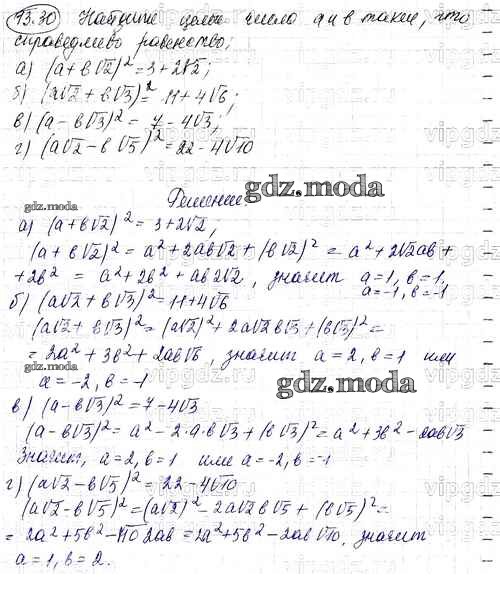 13.30 Найдите целые числа а и в такие, что
справедливо равенство:
а) (а+в√2)² = 3+2√2;
б) (а√2+в√3)² = 11+4√6;
в) (а-в√3)² = 7-4√3;
г) (а√2-в√5)² = 22-4√10
gdz.moda
Решение gdz.moda
а) (а+в√2)² = 3+2√2,
(а+в√2)² = а²+2ав√2+(в√2)² = а²+2√2ав+
+2в² = а²+2в²+ав2√2, значит а=1, в=1.
а=-1, в=-1
б) (а√2+в√3)²=11+4√6
(а√2+в√3)²=(а√2)²+2а√2в√3+(в√3)²=
=2а²+3в²+2ав√6, значит а=2, в=1 или
а=-2, в=-1
gdz.moda
в) (а-в√3)²=7-4√3
(а-в√3)²=а²-2·а·в√3+(в√3)²=а²+3в²-2ав√3
Значит, а=2, в=1 или а=-2, в=-1
г) (а√2-в√5)²=22-4√10
(а√2-в√5)²=(а√2)²-2а√2в√5+(в√5)²=
=2а²+5в²-√10 2ав=2а²+5в²-2ав√10, значит
а=1, в=2.